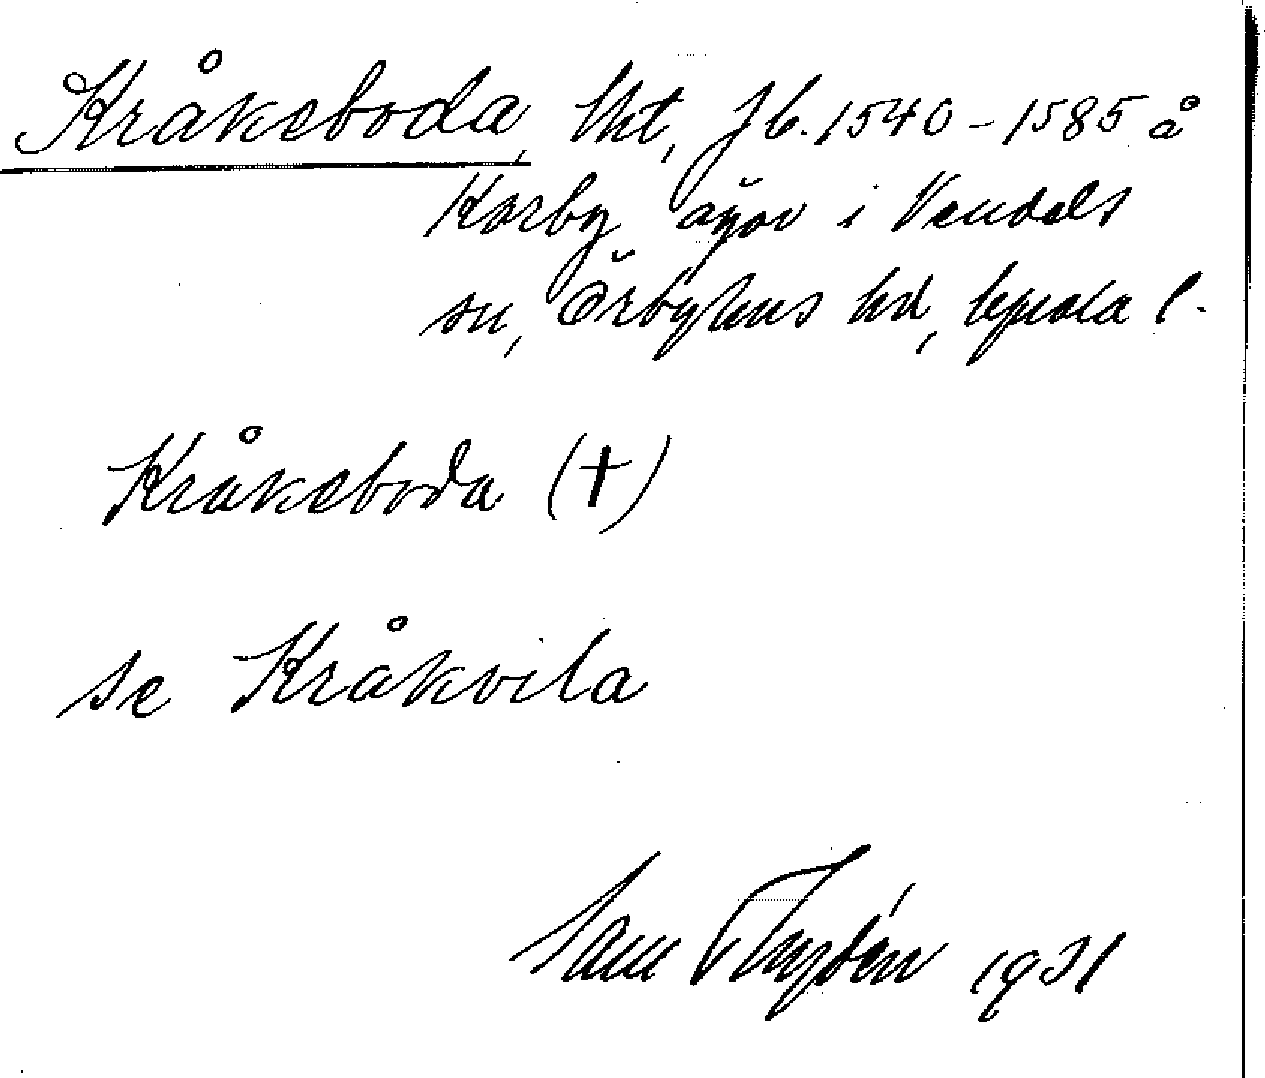 Kråkeboda, tht, Jb. 1540-1585 å
Karby ägor i Vendels
sn, Örbyhus hd, Upsala l.
Kråkeboda (†)
se Kråkvila
Sam 1931